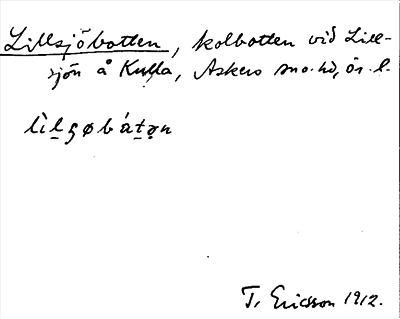 Lillsjöbotten, kolbotten vid Lill-
sjön å Kulla, Askers sn o. hd, ör. l.
lìlʂøbátən
T. Ericsson 1912.